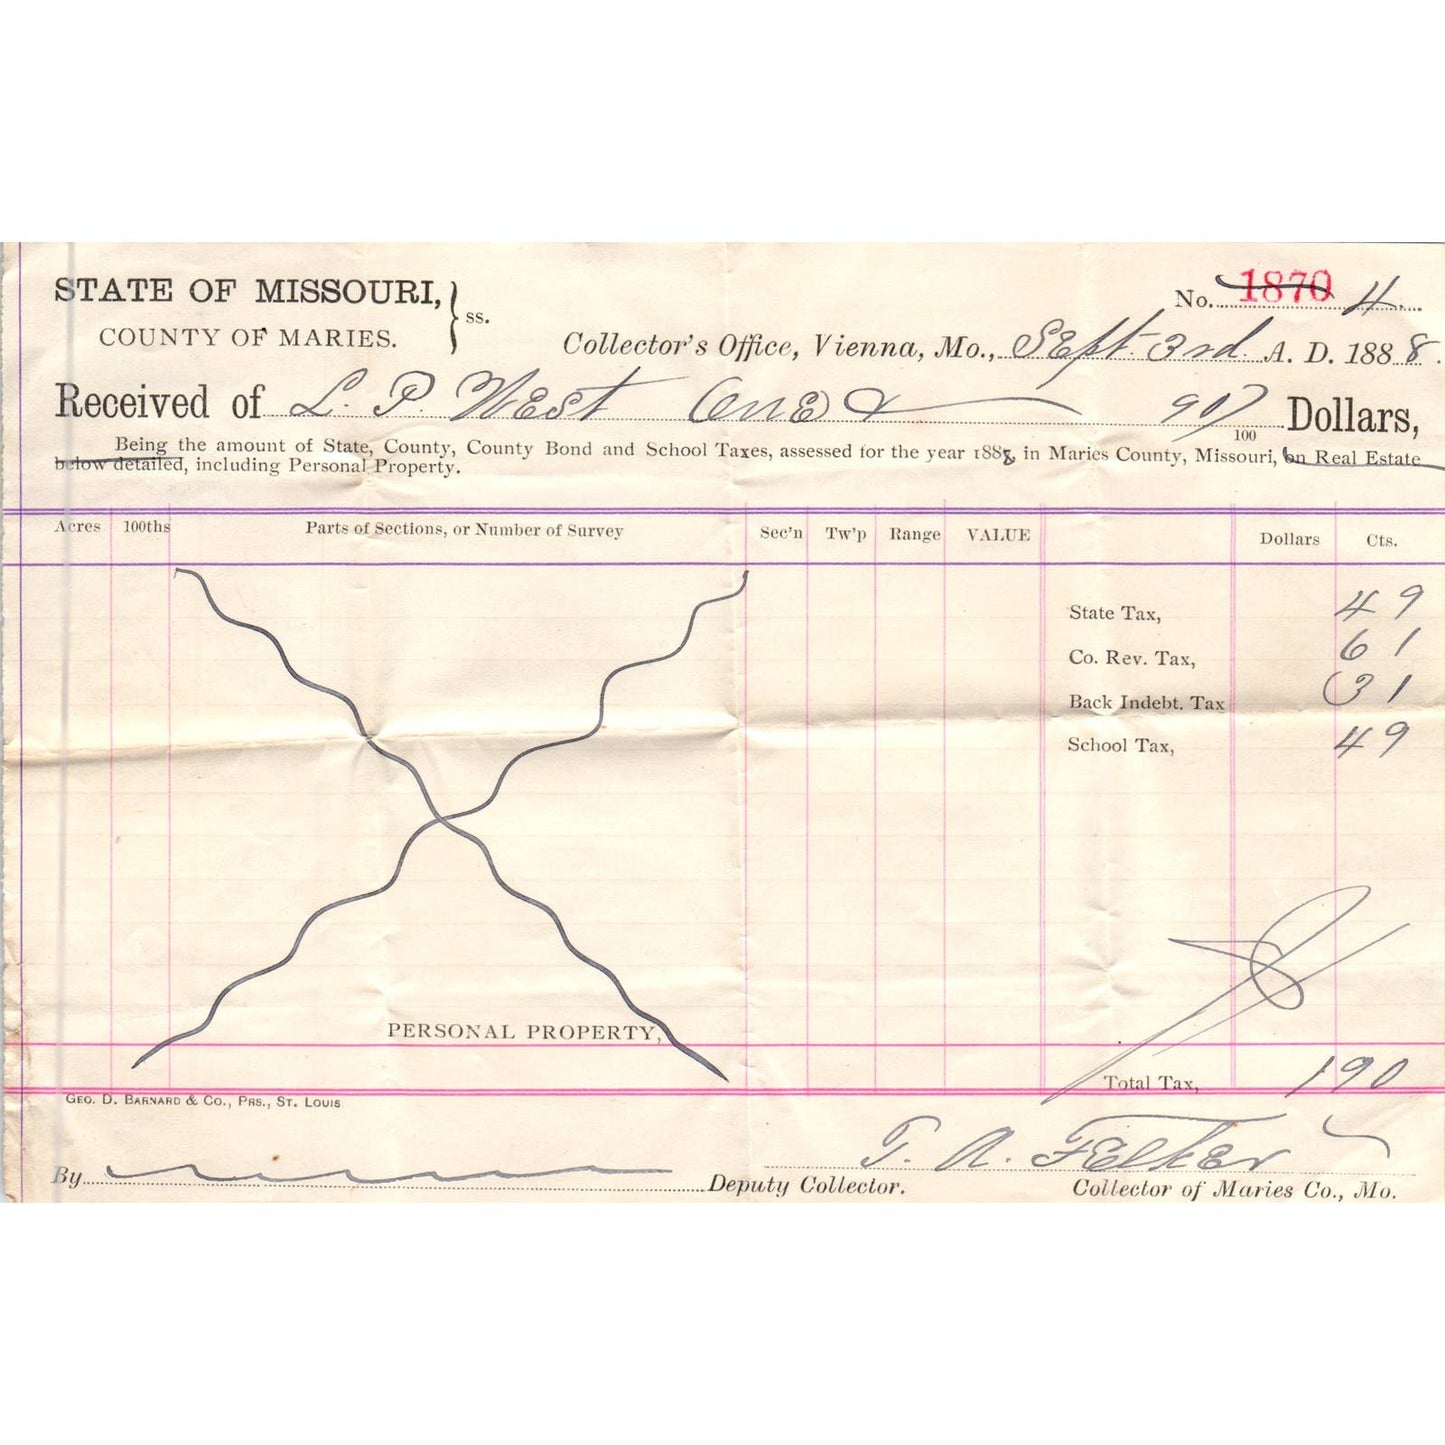 STATE OF MISSOURI,
COUNTY OF MARIES.
ss.
No. 1870 4
Collector's Office, Vienna, Mo., Sept. 3rd A. D. 1888.
Received of L. P. West One & 90/100 Dollars,
Being the amount of State, County, County Bond and School Taxes, assessed for the year 1888, in Maries County, Missouri, on Real Estate
below detailed, including Personal Property.
Acres 100ths Parts of Sections, or Number of Survey Sec'n Tw'p Range VALUE Dollars Cts.
State Tax, 49
Co. Rev. Tax, 61
Back Indebt. Tax 31
School Tax, 49
PERSONAL PROPERTY,
Total Tax, 1 90
GEO. D. BARNARD & CO., PRS., ST. LOUIS
T. A. Felker
By Deputy Collector. Collector of Maries Co., Mo.